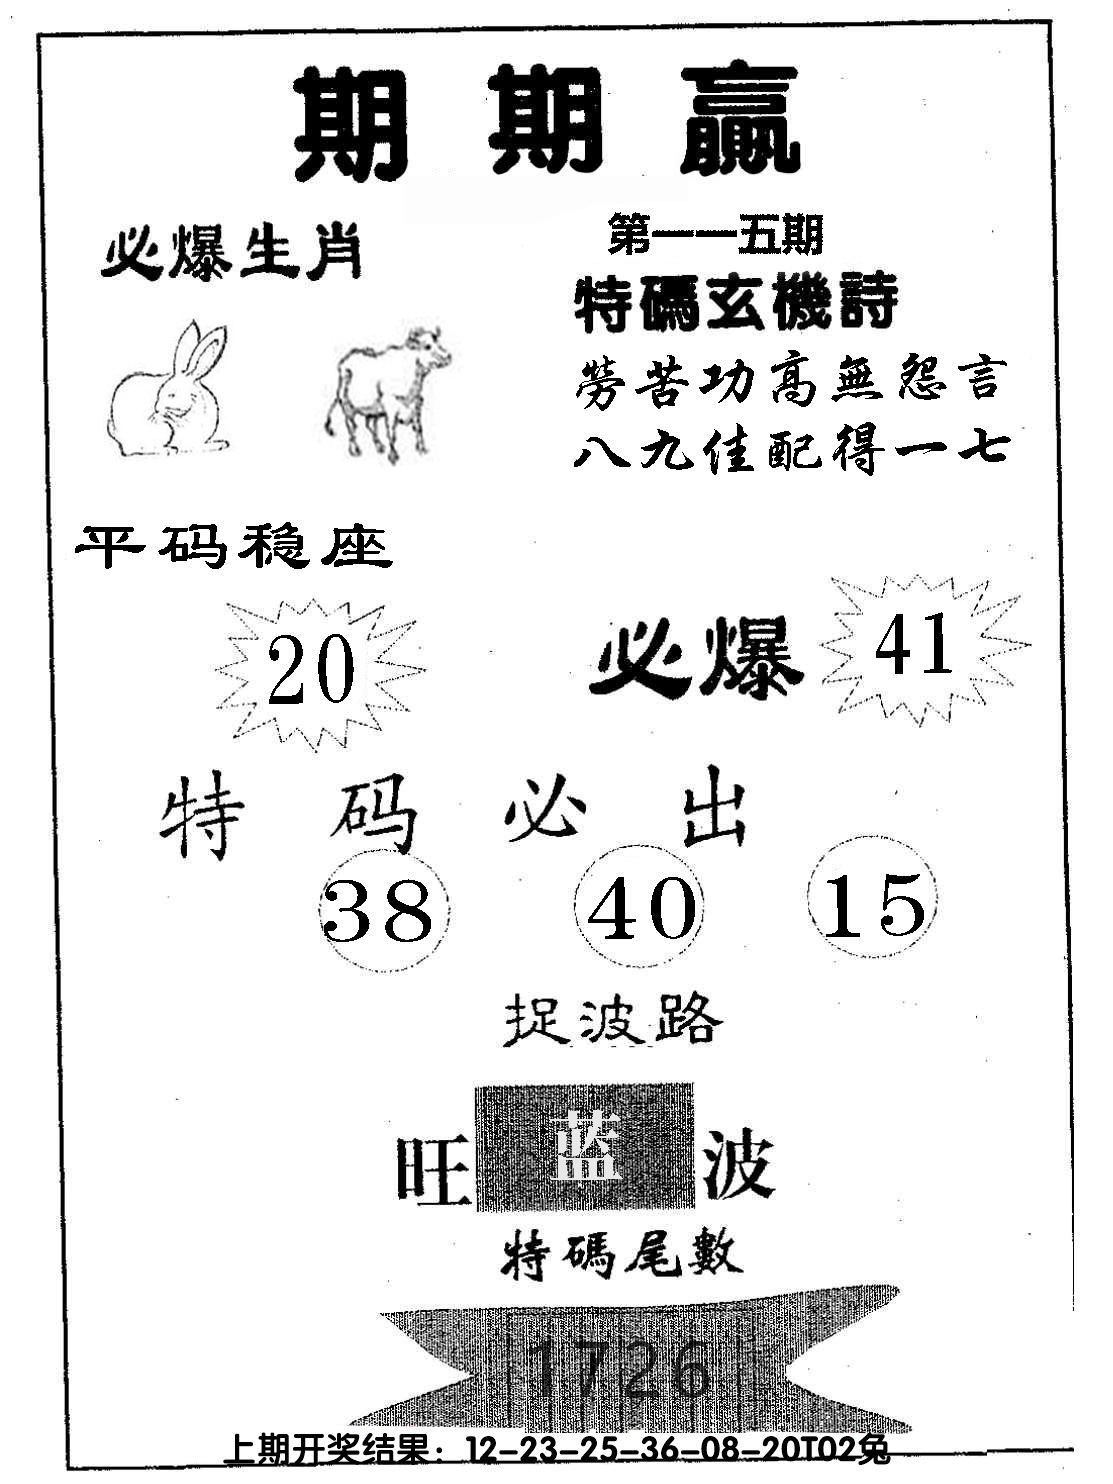 期期贏
必爆生肖
第一一五期
特碼玄機詩
勞苦功高無怨言
八九佳配得一七
平码稳座
20
必爆
41
特码必出
38 40 15
捉波路
旺蓝波
特碼尾數
1726
上期开奖结果：12-23-25-36-08-20T02兔